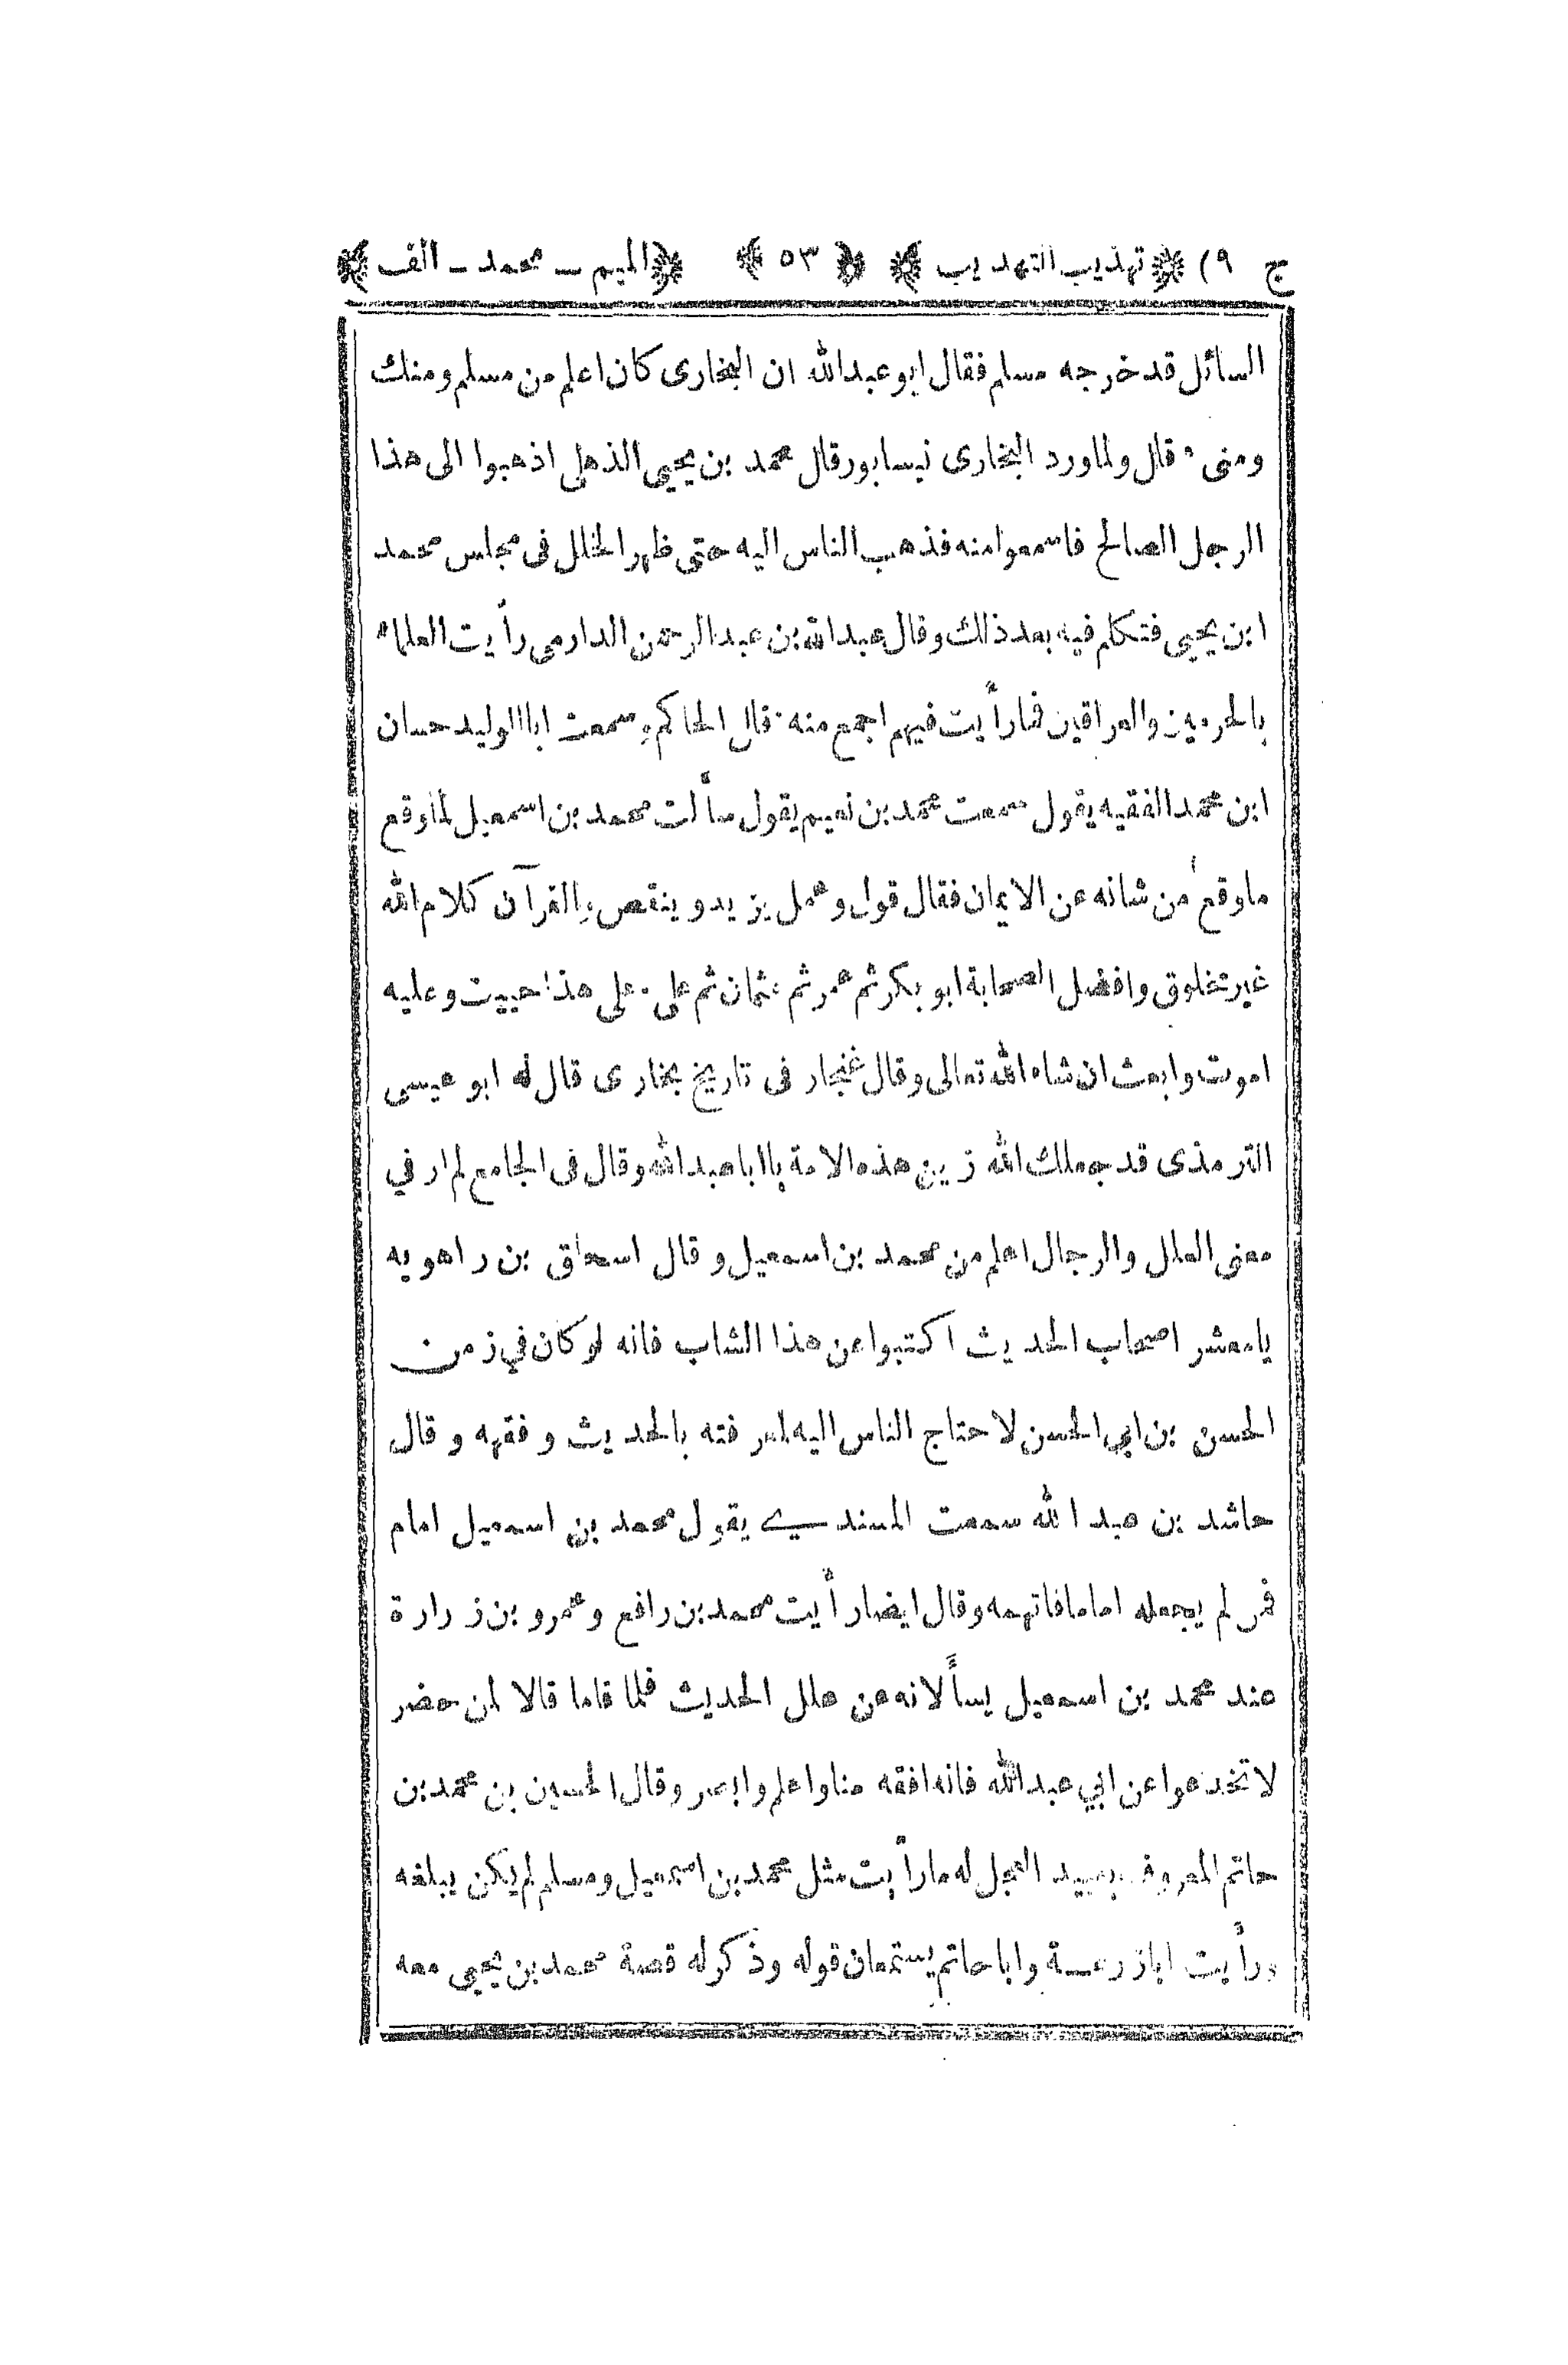 ج ٩) ﴿تهذيب التهذيب﴾ ﴿٥٣﴾ ﴿الميم ـ محمد ـ الف﴾
السائل قد خرجه مسلم فقال ابو عبد الله ان البخارى كان اعلم من مسلم ومنك
ومنى ٠ قال ولما ورد البخارى نيسابور قال محمد بن يحيى الذهلى اذهبوا الى هذا
الرجل الصالح فاسمعوا منه فذهب الناس اليه حتى ظهر الخلل فى مجلس محمد
ابن يحيى فتكلم فيه بعد ذلك وقال عبد الله بن عبد الرحمن الدارمى رأيت العلماء
بالحرمين والعراقين فما رأيت فيهم اجمع منه ٠ قال الحاكم سمعت ابا الوليد حسان
ابن محمد الفقيه يقول سمعت محمد بن نعيم يقول سألت محمد بن اسمعيل لما وقع
ما وقع من شانه عن الايمان فقال قول وعمل يزيد و ينقص والقرآن كلام الله
غير مخلوق وافضل الصحابة ابو بكر ثم عمر ثم عثمان ثم على ٠ على هذا حييت وعليه
اموت وابعث ان شاء الله تعالى وقال غنجار فى تاريخ بخارى قال له ابو عيسى
الترمذى قد جعلك الله زين هذه الامة يا ابا عبد الله وقال فى الجامع لم ار في
معنى العلل والرجال اعلم من محمد بن اسمعيل و قال اسحاق بن راهويه
يا معشر اصحاب الحديث اكتبوا عن هذا الشاب فانه لو كان في زمن
الحسن بن ابي الحسن لاحتاج الناس اليه لمعرفته بالحديث و فقهه و قال
حاشد بن عبد الله سمعت المسندي يقول محمد بن اسمعيل امام
فمن لم يجعله اماما فاتهمه وقال ايضا رأيت محمد بن رافع وعمرو بن زرارة
عند محمد بن اسمعيل يسألانه عن علل الحديث فلما قاما قالا لمن حضر
لا تخدعوا عن ابي عبد الله فانه افقه منا واعلم وابصر وقال الحسين بن محمد بن
حاتم المعروف بعبيد العجل له ما رأيت مثل محمد بن اسمعيل ومسلم لم يكن يبلغه
ورأيت ابا زرعة وابا حاتم يستمعان قوله وذكر له قصة محمد بن يحيى معه